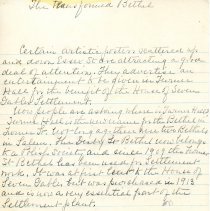 The Transformed Bethel
Certain artistic posters scattered up
and down Essex St. are attracting a good
deal of attention. They advertise an
entertainment to be given in Turner
Hall for the benefit of the House of Seven
Gables Settlement.
Now people are asking where is Turner Hall?
Turner Hall is the new name for the Bethel in
Turner St. Not long ago there were two Bethels
in Salem. The Deaf St Bethel now belongs
to a Polish and since 1909 this Turner
St Bethel has been used for Settlement
work. It was at first rented to the House of
Seven Gables but was purchased in 1913
and is now a very essential part of the
Settlement plant.